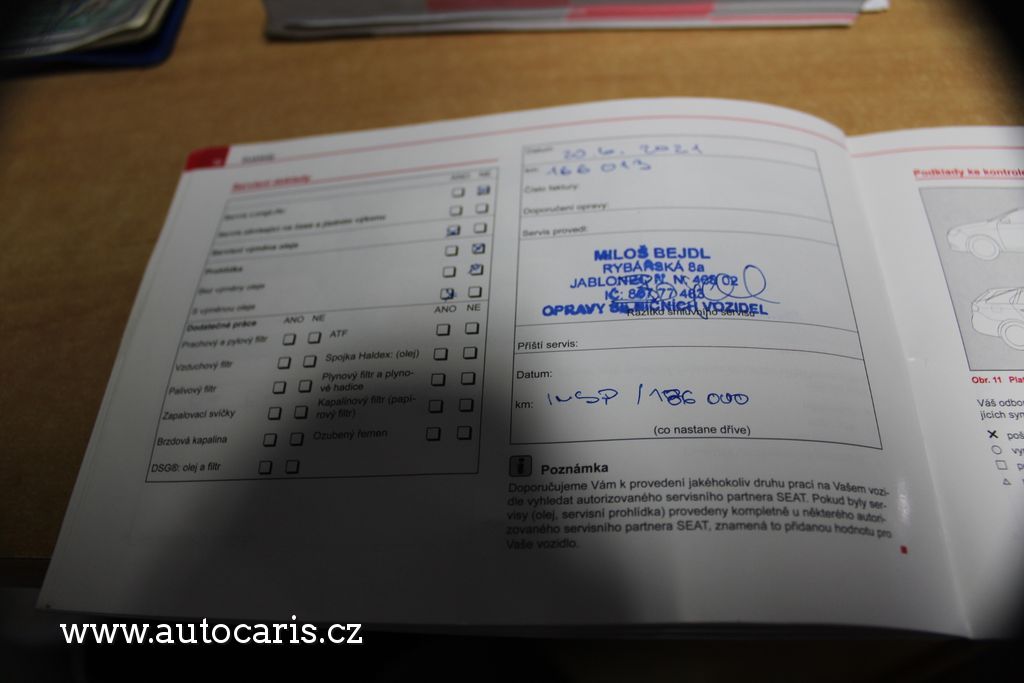 Servisní doklady
ANO NE
Servis LongLife
Servis závislejíci na čase a jízdním výkonu
Servisní výměna oleje
Prohlídka
Bez výměny oleje
S výměnou oleje
Dodatečné práce
ANO NE
ANO NE
Prachový a pylový filtr
ATF
Vzduchový filtr
Spojka Haldex: (olej)
Palivový filtr
Plynový filtr a plyno-
vé hadice
Zapalovací svíčky
Kapalinový filtr (papí-
rový filtr)
Brzdová kapalina
Ozubený řemen
DSG®: olej a filtr
Datum: 2021
km: 166 013
Číslo faktury:
Doporučení opravy:
Servis provedl:
MILOŠ BEJDL
RYBÁŘSKÁ 8a
JABLONEC N. N. 02
IČ: 867 77 463
OPRAVY SILNIČNÍCH VOZIDEL
Razítko smluvního servisu
Příští servis:
Datum:
km: INSP / 186 000
(co nastane dříve)
i Poznámka
Doporučujeme Vám k provedení jakéhokoliv druhu prací na Vašem vozi-
dle vyhledat autorizovaného servisního partnera SEAT. Pokud byly ser-
visy (olej, servisní prohlídka) provedeny kompletně u některého autori-
zovaného servisního partnera SEAT, znamená to přidanou hodnotu pro
Vaše vozidlo.
Podklady ke kontrole
Obr. 11
Váš
jících
www.autocaris.cz